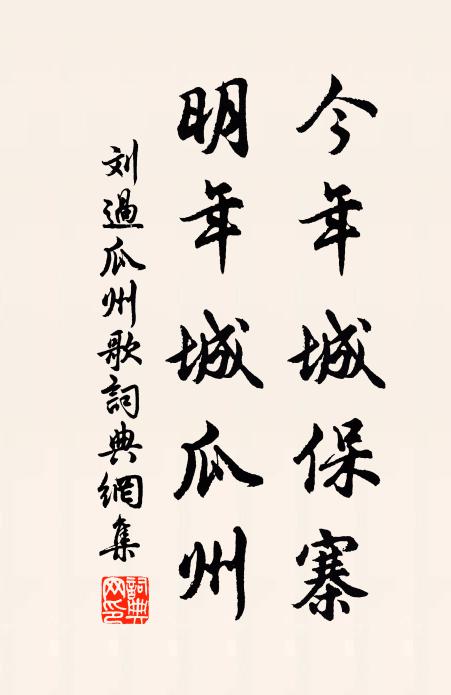 今年城保寨
明年城瓜州
刘過瓜州歌詞典網集